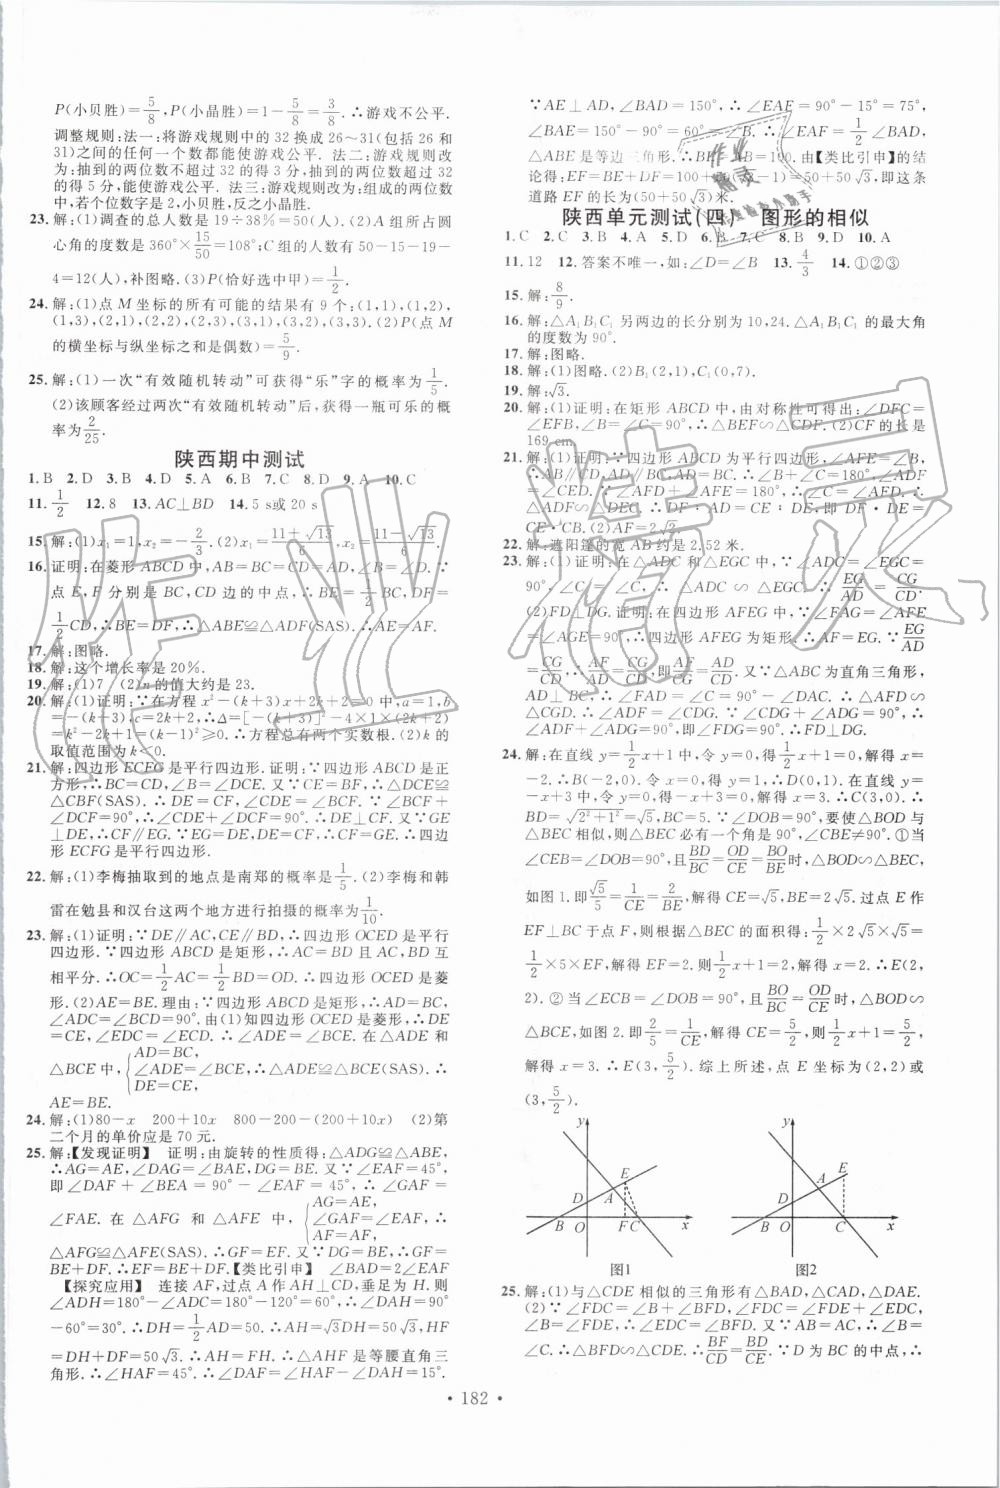 P(小贝胜)=5/8,P(小晶胜)=1-5/8=3/8.∴游戏不公平.
调整规则:法一:将游戏规则中的32换成26～31(包括26和
31)之间的任何一个数都能使游戏公平.法二:游戏规则改
为:抽到的两位数不超过32的得3分,抽到的两位数超过32
的得5分,能使游戏公平.法三:游戏规则改为:组成的两位数
中,若个位数字是2,小贝胜,反之小晶胜.
23.解:(1)调查的总人数是19÷38%=50(人).(2)A组所占圆
心角的度数是360°×15/50=108°;C组的人数有50-15-19-
4=12(人),补图略.(3)P(恰好选中甲)=1/2.
24.解:(1)点M坐标的所有可能的结果有9个:(1,1),(1,2),
(1,3),(2,1),(2,2),(2,3),(3,1),(3,2),(3,3).(2)P(点M
的横坐标与纵坐标之和是偶数)=5/9.
25.解:(1)一次“有效随机转动”可获得“乐”字的概率为1/5.
(2)该顾客经过两次“有效随机转动”后,获得一瓶可乐的概
率为2/25.
陕西期中测试
1.B 2.D 3.B 4.D 5.A 6.B 7.C 8.D 9.A 10.C
11.1/2 12.8 13.AC⊥BD 14.5 s或20 s
15.解:(1)x₁=1,x₂=-2/3.(2)x₁=(11+√13)/6,x₂=(11-√13)/6.
16.证明:在菱形ABCD中,AB=BC=CD=AD,∠B=∠D.∵
点E,F分别是BC,CD边的中点,∴BE=1/2BC,DF=
1/2CD,∴BE=DF.∴△ABE≌△ADF(SAS).∴AE=AF.
17.解:图略.
18.解:这个增长率是20%.
19.解:(1)7 (2)n的值大约是23.
20.解:(1)证明:∵在方程x²-(k+3)x+2k+2=0中,a=1,b
=-(k+3),c=2k+2,∴Δ=[-(k+3)]²-4×1×(2k+2)
=k²-2k+1=(k-1)²≥0.∴方程总有两个实数根.(2)k的
取值范围为k<0.
21.解:四边形ECFG是平行四边形.证明:∵四边形ABCD是正
方形,∴BC=CD,∠B=∠DCE.又∵CE=BF,∴△DCE≌
△CBF(SAS).∴DE=CF,∠CDE=∠BCF.∵∠BCF+
∠DCF=90°,∴∠CDE+∠DCF=90°.∴DE⊥CF.又∵GE
⊥DE,∴CF∥EG.∵EG=DE,DE=CF,∴GE=CF.∴四边
形ECFG是平行四边形.
22.解:(1)李梅抽取到的地点是南郑的概率是1/5.(2)李梅和韩
雷在勉县和汉台这两个地方进行拍摄的概率为1/10.
23.解:(1)证明:∵DE∥AC,CE∥BD,∴四边形OCED是平行
四边形.∵四边形ABCD是矩形,∴AC=BD且AC,BD互
相平分.∴OC=1/2AC=1/2BD=OD.∴四边形OCED是菱
形.(2)AE=BE.理由:∵四边形ABCD是矩形,∴AD=BC,
∠ADC=∠BCD=90°.由(1)知四边形OCED是菱形,∴DE
=CE,∠EDC=∠ECD.∴∠ADE=∠BCE.在△ADE和
△BCE中,{AD=BC,∠ADE=∠BCE,DE=CE,∴△ADE≌△BCE(SAS).∴
AE=BE.
24.解:(1)80-x 200+10x 800-200-(200+10x) (2)第
二个月的单价应是70元.
25.解:【发现证明】 证明:由旋转的性质得:△ADG≌△ABE,
∴AG=AE,∠DAG=∠BAE,DG=BE.又∵∠EAF=45°,
即∠DAF+∠BEA=90°-∠EAF=45°,∴∠GAF=
∠FAE.在△AFG和△AFE中,{AG=AE,∠GAF=∠EAF,AF=AF,∴
△AFG≌△AFE(SAS).∴GF=EF.又∵GF=DG+DF=
BE+DF,∴EF=BE+DF.【类比引申】 ∠BAD=2∠EAF
【探究应用】 连接AF,过点A作AH⊥CD,垂足为H.则
∠ADH=180°-∠ADC=180°-120°=60°.∴∠DAH=90°
-60°=30°.∴DH=1/2AD=50.∴AH=√3DH=50√3,HF
=DH+DF=50√3.∴AH=FH.∴△AHF是等腰直角三
角形.∴∠HAF=45°.∴∠DAF=∠HAF-∠DAH=15°.
∵AE⊥AD,∠BAD=150°,∴∠EAF=90°-15°=75°,
∠BAE=150°-90°=60°=∠B.∴∠EAF=1/2∠BAD,
△ABE是等边三角形.∴BE=AB=100.由【类比引申】的结
论得:EF=BE+DF=100+50(√3-1)=50+50√3,即这条
道路EF的长为(50+50√3)米.
陕西单元测试(四) 图形的相似
1.C 2.C 3.B 4.A 5.D 6.B 7.C 8.B 9.D 10.A
11.12 12.答案不唯一,如:∠D=∠B 13.4/3 14.①②③
15.解:8/9.
16.解:△A₁B₁C₁另两边的长分别为10,24.△A₁B₁C₁的最大角
的度数为90°.
17.解:图略.
18.解:(1)图略.(2)B₁(2,1),C₁(0,7).
19.解:√3.
20.解:(1)证明:在矩形ABCD中,由对称性可得出:∠DFC=
∠EFB,∠B=∠C,∴△BEF∽△CDF.(2)CF的长是
169 cm.
21.解:(1)证明:∵四边形ABCD为平行四边形,∠AFE=∠B,∴
AB∥CD,AD∥BC.∴∠B+∠C=180°,∠ADF
=∠CED.∵∠AFD+∠AFE=180°,∴∠C=∠AFD.∴
△ADF∽△DEC.∴DF:AD=CE:DE,即DF·DE=
AD·CE.(2)AF=2√2.
22.解:遮阳篷的宽AB约是2.52米.
23.解:(1)证明:在△ADC和△EGC中,∵∠ADC=∠EGC=
90°,∠C=∠C,∴△ADC∽△EGC.∴EG/AD=CG/CD.
(2)FD⊥DG.证明:在四边形AFEG中,∵∠FAG=∠AFE
=∠AGE=90°,∴四边形AFEG为矩形.∴AF=EG.∵EG/AD
=CG/CD,∴AF/AD=CG/CD,∴AF/CG=AD/CD.又∵△ABC为直角三角形,
AD⊥BC,∴∠FAD=∠C=90°-∠DAC.∴△AFD∽
△CGD.∴∠ADF=∠CDG.∵∠CDG+∠ADG=90°,∴
∠ADF+∠ADG=90°,即∠FDG=90°.∴FD⊥DG.
24.解:在直线y=1/2x+1中,令y=0,得1/2x+1=0,解得x=
-2.∴B(-2,0).令x=0,得y=1.∴D(0,1).在直线y=
-x+3中,令y=0,得-x+3=0,解得x=3.∴C(3,0).∴
BD=√2²+1²=√5,BC=5.∵∠BOD=90°,要使△BOD与
△BEC相似,则△BEC必有一个角是90°,∠CBE≠90°.①当
∠CEB=∠DOB=90°,且BD/BC=OD/CE=BO/BE时,△BOD∽△BEC,
如图1.即√5/5=1/CE=2/BE,解得CE=√5,BE=2√5.过点E作
EF⊥BC于点F,则根据△BEC的面积得:1/2×2√5×√5=
1/2×5×EF,解得EF=2.则1/2x+1=2,解得x=2.∴E(2,
2).②当∠ECB=∠DOB=90°,且BO/BC=OD/CE时,△BOD∽
△BCE,如图2.即2/5=1/CE,解得CE=5/2,则1/2x+1=5/2,
解得x=3.∴E(3,5/2).综上所述,点E坐标为(2,2)或
(3,5/2).
y E D A B O F C x
y E D A B O C x
图1 图2
25.解:(1)与△CDE相似的三角形有△BAD,△CAD,△DAE.
(2)∵∠FDC=∠B+∠BFD,∠FDC=∠FDE+∠EDC,
∠B=∠FDE,∴∠BFD=∠EDC.又∵AB=AC,∴∠B=
∠C.∴△BFD∽△CDE.∴BF/CD=BD/CE.又∵D为BC的中点,∴
· 182 ·
作业精灵